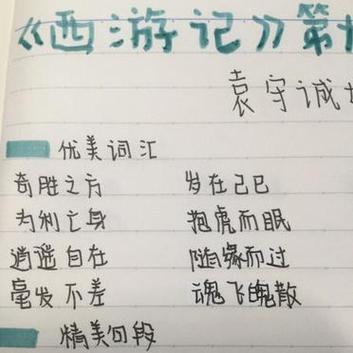 《西游记》第
袁守诚
优美词汇
奇胜之方 岁在己巳
为利亡身 抱虎而眠
逍遥自在 随缘而过
毫发不差 魂飞魄散
精美句段